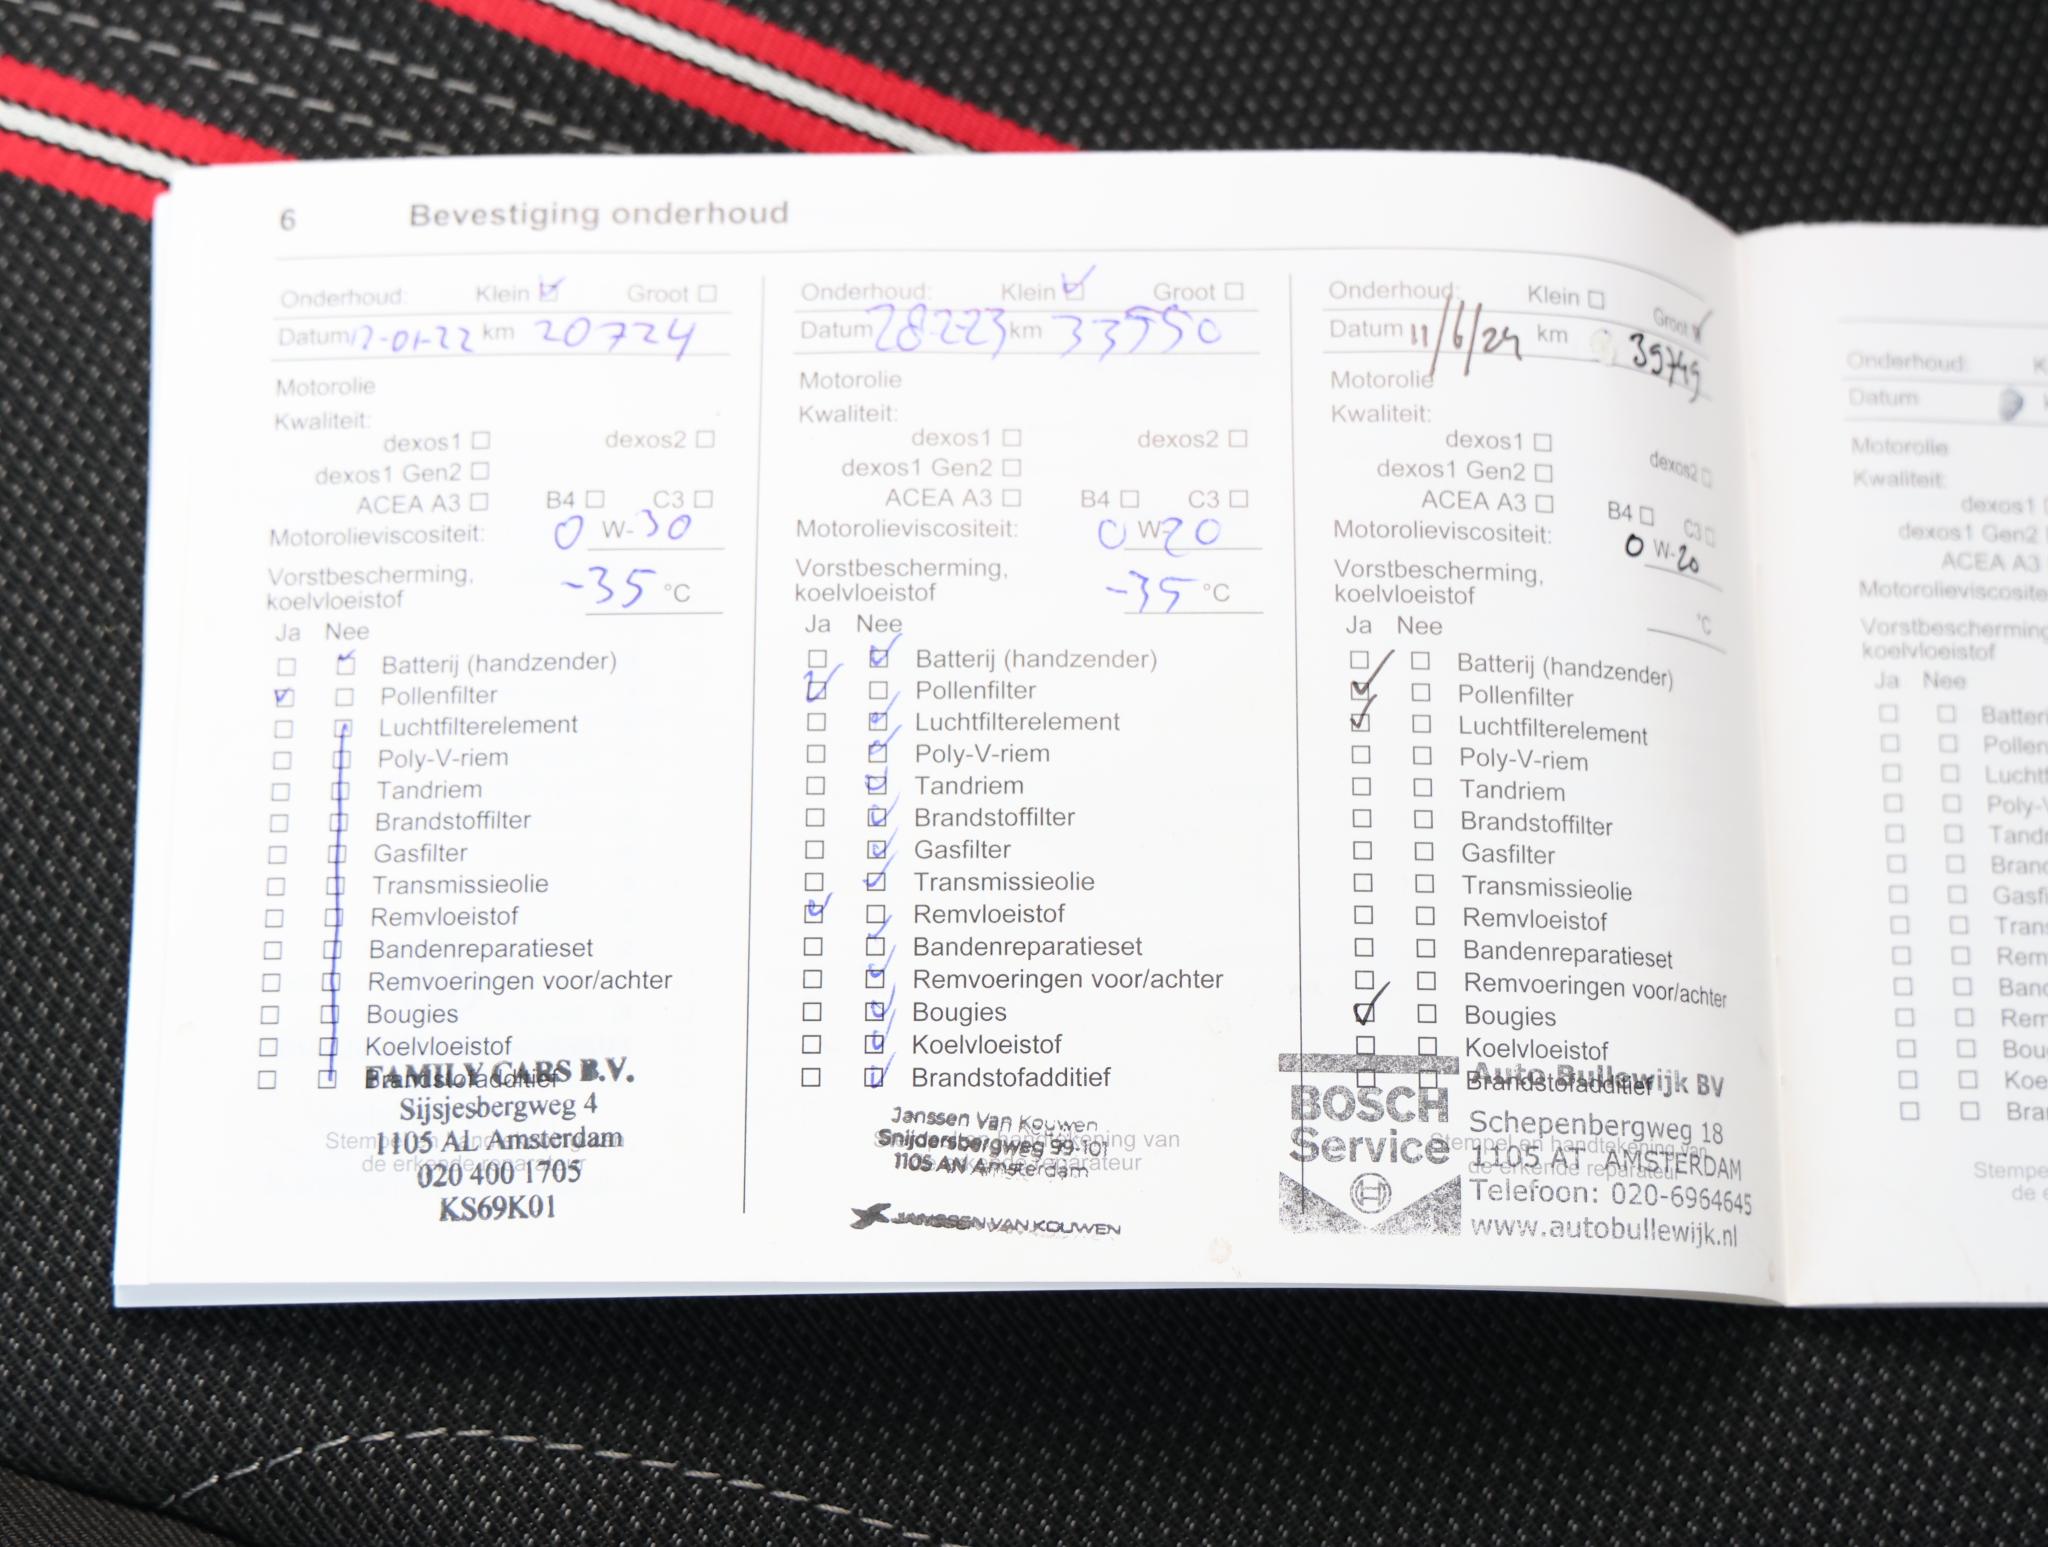 6 Bevestiging onderhoud
Onderhoud: Klein Groot
Datum 12-01-22 km 20724
Motorolie
Kwaliteit:
dexos1 dexos2
dexos1 Gen2
ACEA A3 B4 C3
Motorolieviscositeit: 0 W-30
Vorstbescherming,
koelvloeistof -35 °C
Ja Nee
Batterij (handzender)
Pollenfilter
Luchtfilterelement
Poly-V-riem
Tandriem
Brandstoffilter
Gasfilter
Transmissieolie
Remvloeistof
Bandenreparatieset
Remvoeringen voor/achter
Bougies
Koelvloeistof
Brandstofadditief
FAMILY CARS B.V.
Sijsjesbergweg 4
1105 AL Amsterdam
020 400 1705
KS69K01
Stempel en handtekening van
de erkende reparateur
Onderhoud: Klein Groot
Datum 28-2-23 km 33550
Motorolie
Kwaliteit:
dexos1 dexos2
dexos1 Gen2
ACEA A3 B4 C3
Motorolieviscositeit: 0 W-20
Vorstbescherming,
koelvloeistof -35 °C
Ja Nee
Batterij (handzender)
Pollenfilter
Luchtfilterelement
Poly-V-riem
Tandriem
Brandstoffilter
Gasfilter
Transmissieolie
Remvloeistof
Bandenreparatieset
Remvoeringen voor/achter
Bougies
Koelvloeistof
Brandstofadditief
Janssen Van Kouwen
Snijdersbergweg 99-101
1105 AN Amsterdam
Stempel en handtekening van
de erkende reparateur
JANSSEN VAN KOUWEN
Onderhoud: Klein Groot
Datum 11/6/24 km 39749
Motorolie
Kwaliteit:
dexos1 dexos2
dexos1 Gen2
ACEA A3 B4 C3
Motorolieviscositeit: 0 W-20
Vorstbescherming,
koelvloeistof °C
Ja Nee
Batterij (handzender)
Pollenfilter
Luchtfilterelement
Poly-V-riem
Tandriem
Brandstoffilter
Gasfilter
Transmissieolie
Remvloeistof
Bandenreparatieset
Remvoeringen voor/achter
Bougies
Koelvloeistof
Brandstofadditief
BOSCH
Service
Auto Bullewijk BV
Schepenbergweg 18
1105 AT AMSTERDAM
Telefoon: 020-6964645
www.autobullewijk.nl
Stempel en handtekening van
de erkende reparateur
Onderhoud: K
Datum
Motorolie
Kwaliteit:
dexos1
dexos1 Gen2
ACEA A3
Motorolieviscosite
Vorstbescherming
koelvloeistof
Ja Nee
Batteri
Pollen
Luchtf
Poly-V
Tandr
Brand
Gasfi
Trans
Rem
Band
Rem
Bou
Koe
Bra
Stempe
de e